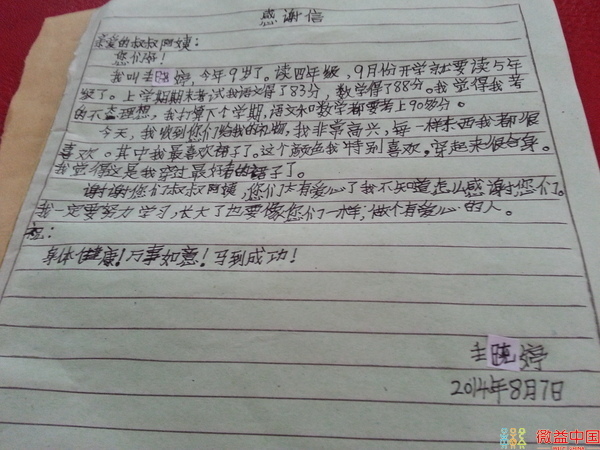 感谢信
亲爱的叔叔阿姨：
您们好！
我叫王晓婷，今年9岁了。读四年级，9月份开学就要读5年
级了。上学期期末考试我语文得了83分，数学得了88分。我觉得我考
的不太理想，我打算下个学期，语文和数学都要考上90多分。
今天，我收到您们给我的礼物，我非常高兴，每一样东西我都很
喜欢。其中我最喜欢裙子了。这个颜色我特别喜欢，穿起来很合身。
我觉得这是我穿过最好看的裙子了。
谢谢您们叔叔阿姨，您们太有爱心了我不知道怎么感谢您们了。
我一定要努力学习，长大了也要像您们一样，做个有爱心的人。
祝：
身体健康！万事如意！马到成功！
王晓婷
2014年8月7日
微益中国